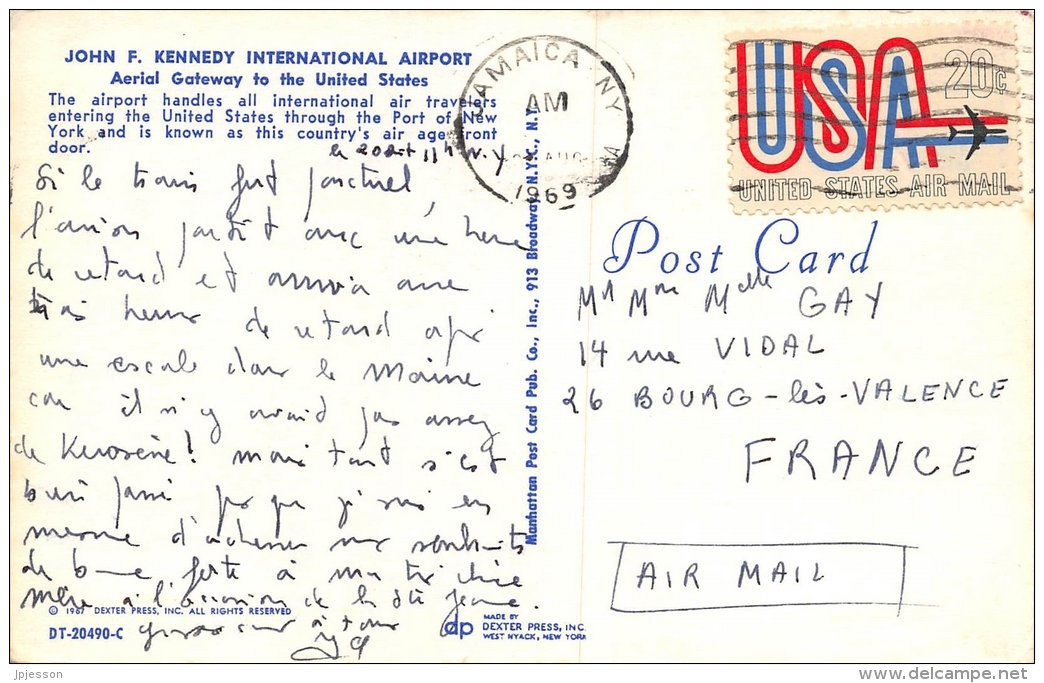 JOHN F. KENNEDY INTERNATIONAL AIRPORT
Aerial Gateway to the United States
The airport handles all international air travelers
entering the United States through the Port of New
York and is known as this country's air age front
door.
le 20 11h N.Y
Si le train fut ponctuel
l'avion partit avec une heure
de retard et arriva avec
trois heures de retard après
une escale dans le Maine
car il n'y avait pas assez
de Kerosène! mais tout s'est
bien passé que je suis en
mesure d'adresser mes souhaits
de bonne fête à ma très chère
mère à l'occasion de
à tous
© 1967 DEXTER PRESS, INC. ALL RIGHTS RESERVED
DT-20490-C
Manhattan Post Card Pub. Co., Inc., 913 Broadway, N.Y.C., N.Y.
dp MADE BY
DEXTER PRESS, INC.
WEST NYACK, NEW YORK
JAMAICA NY
AM
AUG
1969
USA
20c
UNITED STATES AIR MAIL
Post Card
Mr Mme Melle GAY
14 rue VIDAL
26 BOURG-lès-VALENCE
FRANCE
AIR MAIL
jpjesson
delcampe.net